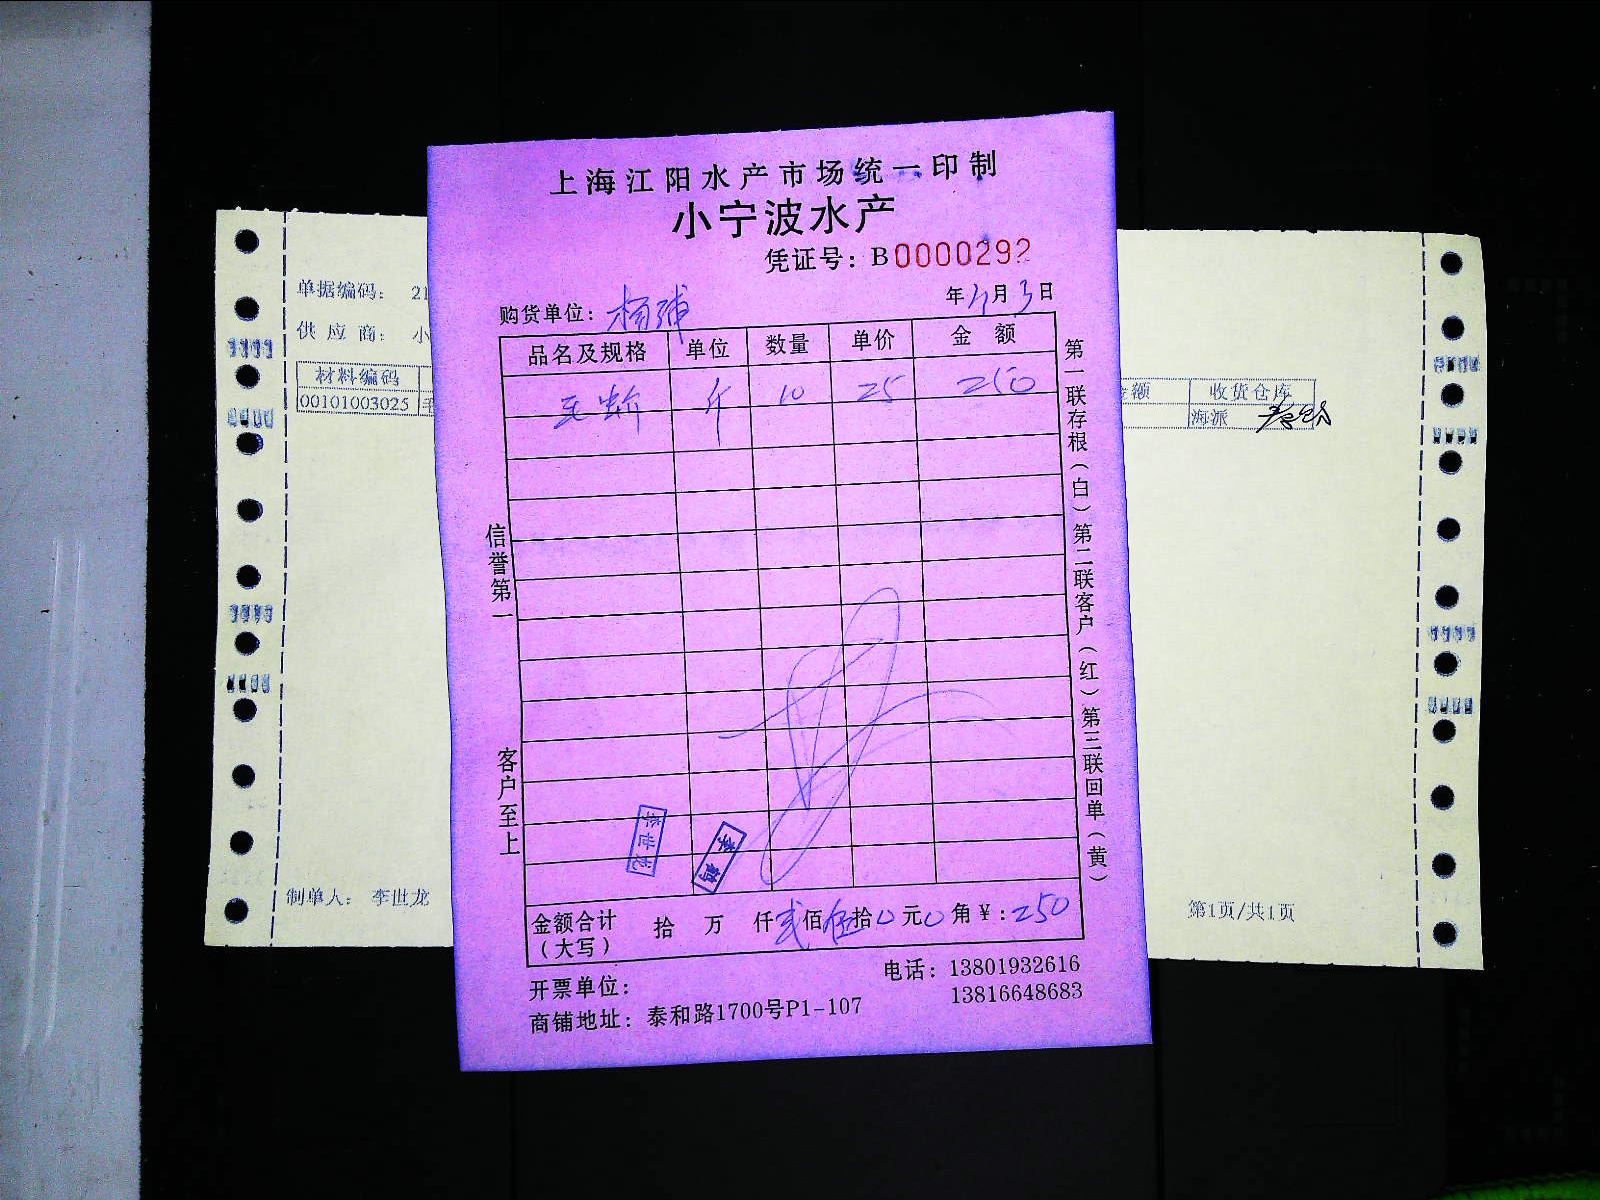 上海江阳水产市场统一印制
小宁波水产
凭证号：B0000292
购货单位：杨浦 年4月3日
品名及规格 单位 数量 单价 金额
毛蚶 斤 10 25 250
信誉第一
客户至上
第一联存根（白）第二联客户（红）第三联回单（黄）
李世龙
金额合计（大写） 拾 万 仟贰佰伍拾0元0角¥：250
开票单位：
电话：13801932616
13816648683
商铺地址：泰和路1700号P1-107
单据编码： 21
供应商： 小
材料编码
00101003025 毛
额 收货仓库
海派
制单人： 李世龙
第1页/共1页